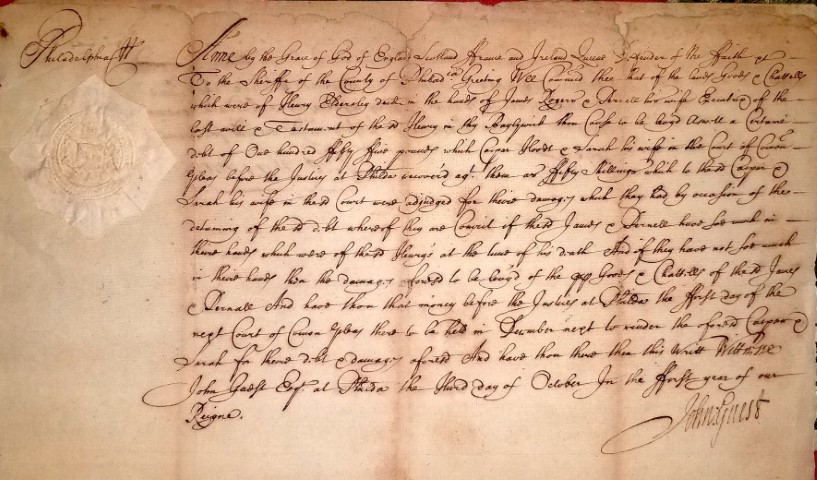 Philadelphia ss
Anne by the Grace of God of England Scotland ffrance and Ireland Queen Defender of the ffaith &c
To the Sheriffe of the County of Philadia Greeting Wee Comand thee that off the lands Goods & Chattells
which were of Henry decd in the hands of James & his wife of the
last will & Testament of the sd Henry in thy Baylywick thou Cause to be levyed Aswell a Certaine
debt of One hundred ffifty ffive pounds which Casper Hoodt & Sarah his wife in the Court of Comon
Pleas before the Justices at Philda recovered agt. them as ffifty Shillings which to the sd Casper &
Sarah his wife in the sd Court were adjudged for theire damages which they had by occasion of the
detaining of the sd debt whereof they are Convict if the sd James & have soe much in
theire hands which were of the sd Henrys at the time of his death And if they have not soe much
in theire hands then the damages aforesd to be levyed of the Goods & Chattells of the sd James
& And have thou that money before the Justices at Philda the ffirst day of the
next Court of Comon Pleas there to be held in December next to render the aforesd Casper &
Sarah for theire debt & damages aforesd And have thou there then this Writt Wittnesse
John Guest Esqr. at Philda the third day of October In the ffirst year of our
Reigne.
John Guest